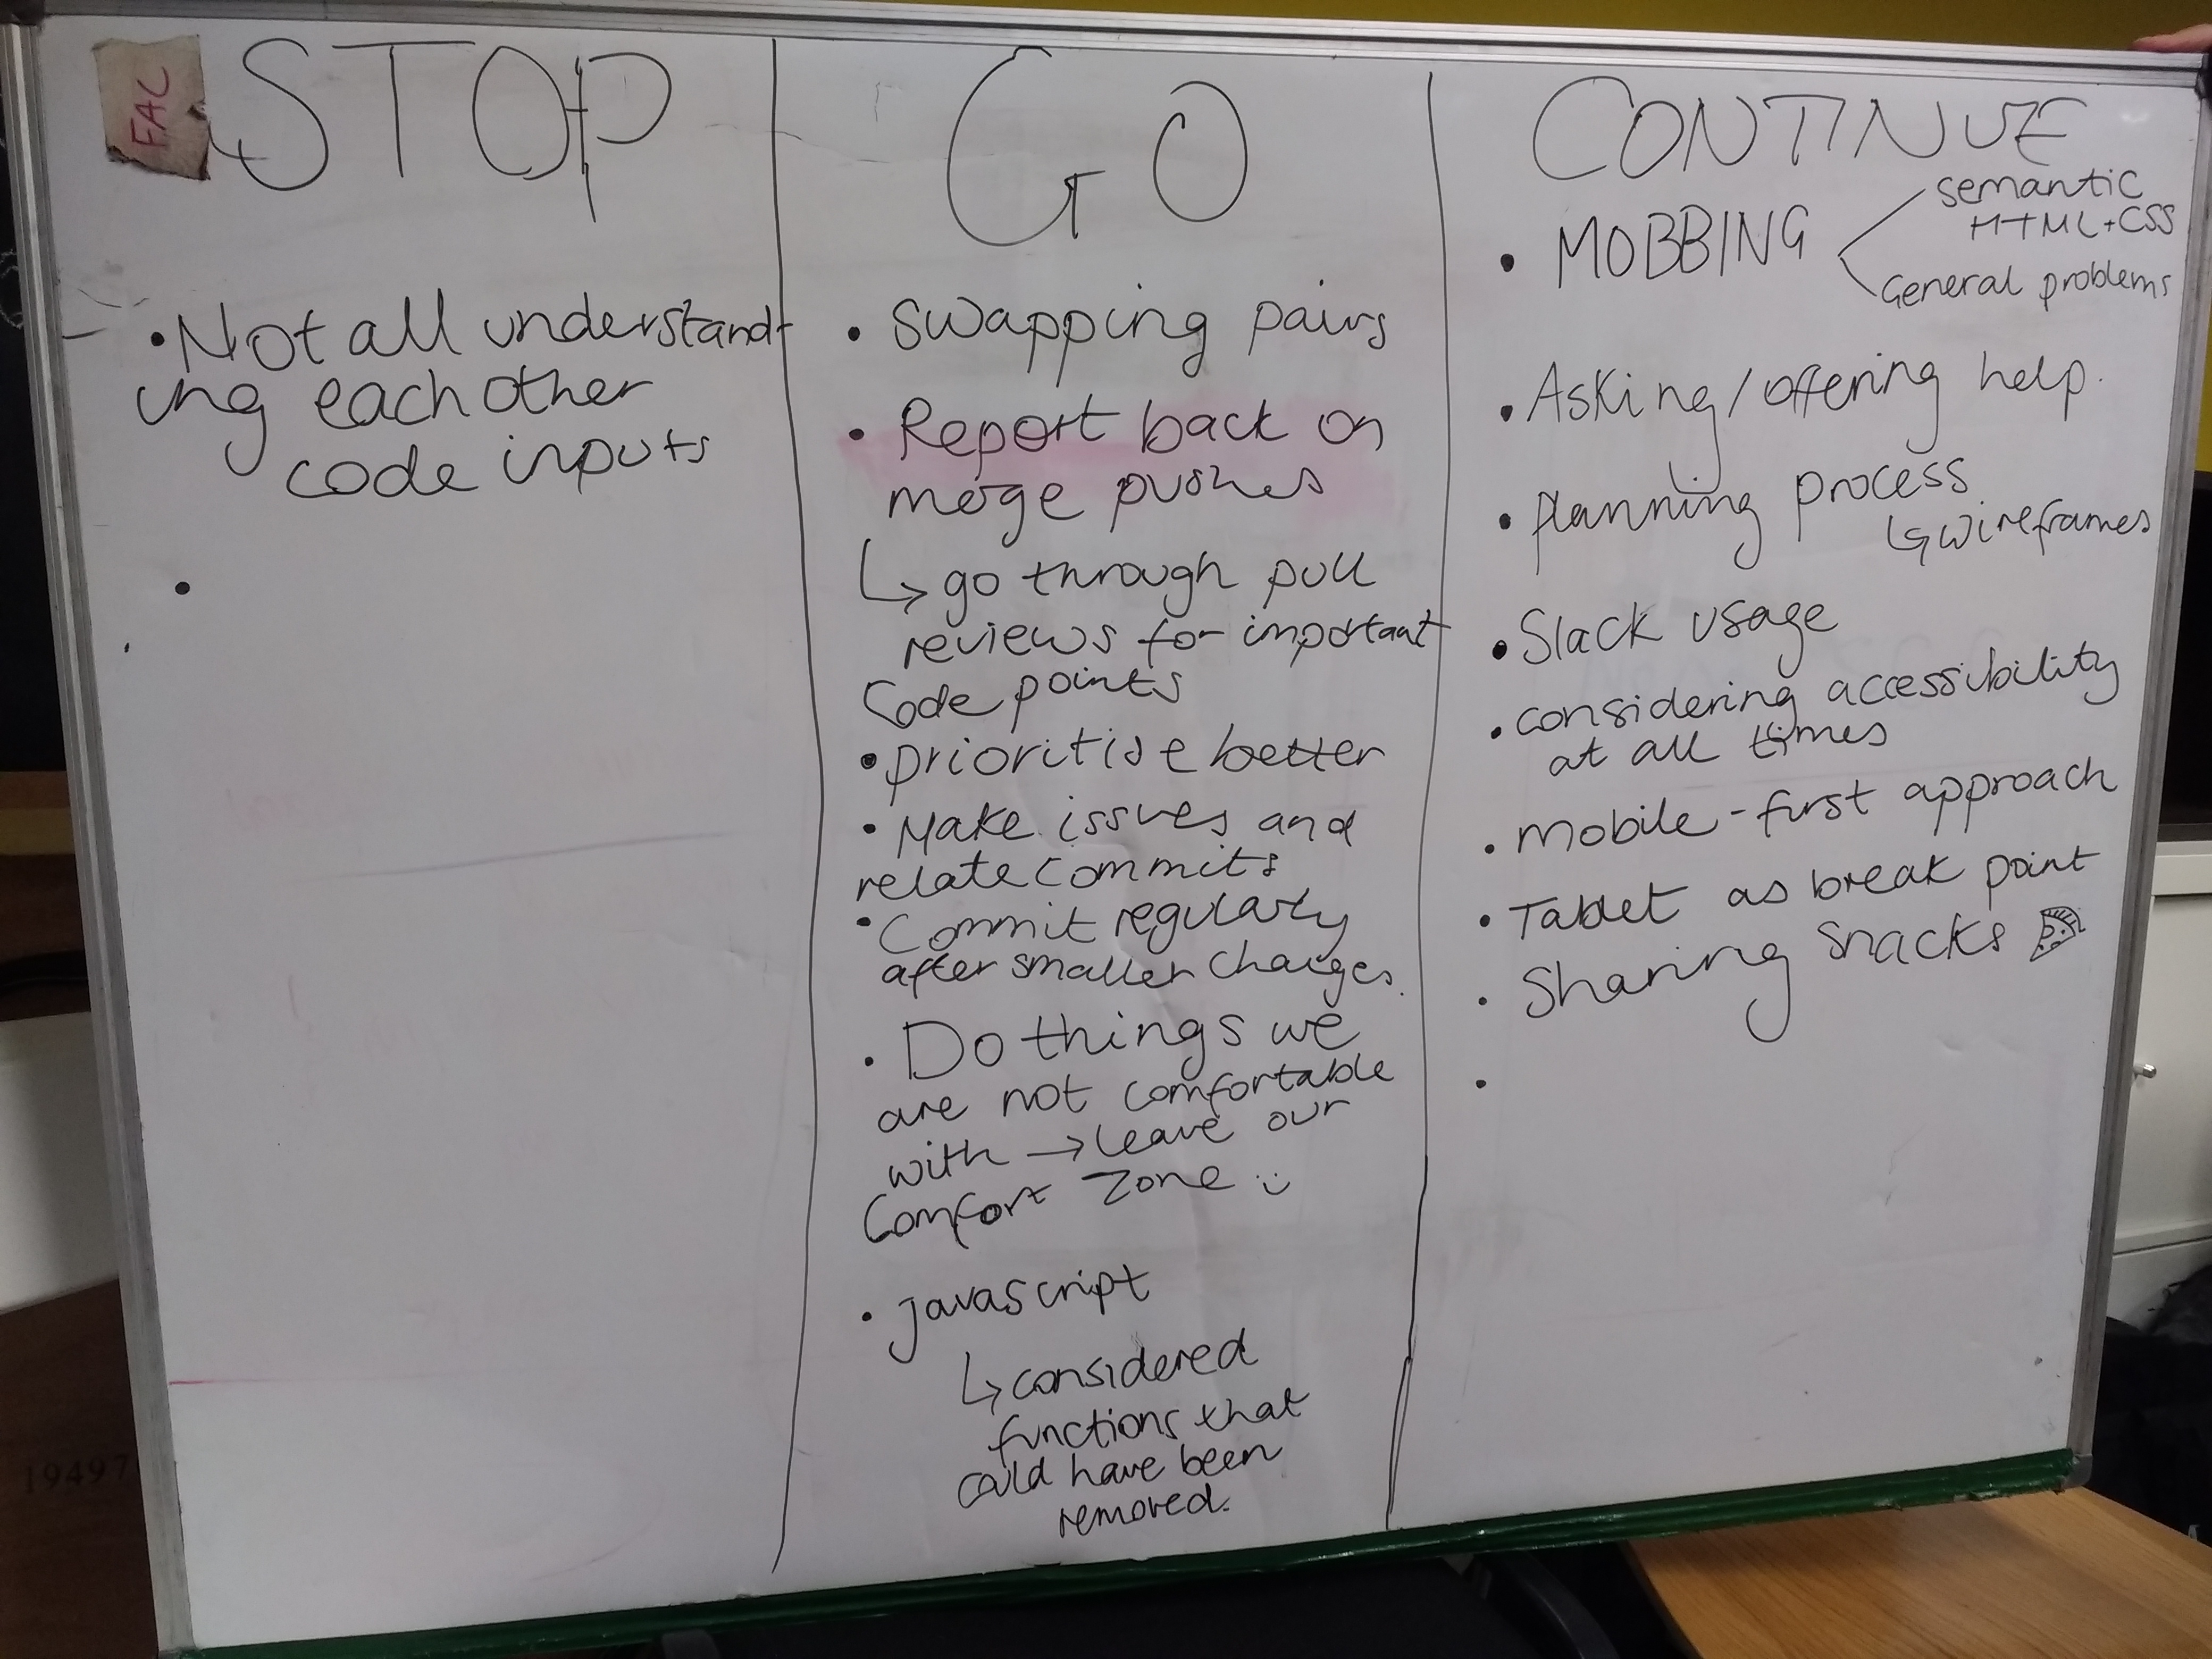 FAC
STOP
• Not all understand
ing each other
code inputs
•
GO
• Swapping pairs
• Report back on
merge pushes
↳ go through pull
reviews for important
Code points
• prioritise better
• Make issues and
relate commits
• Commit regularly
after smaller changes.
• Do things we
are not comfortable
with → leave our
Comfort Zone :)
• javascript
↳ considered
functions that
could have been
removed.
CONTINUE
• MOBBING
semantic
HTML+CSS
General problems
• Asking/offering help.
• planning process
↳ wireframes
• Slack usage
• considering accessibility
at all times
• mobile-first approach
• Tablet as break point
• Sharing snacks
•
19497